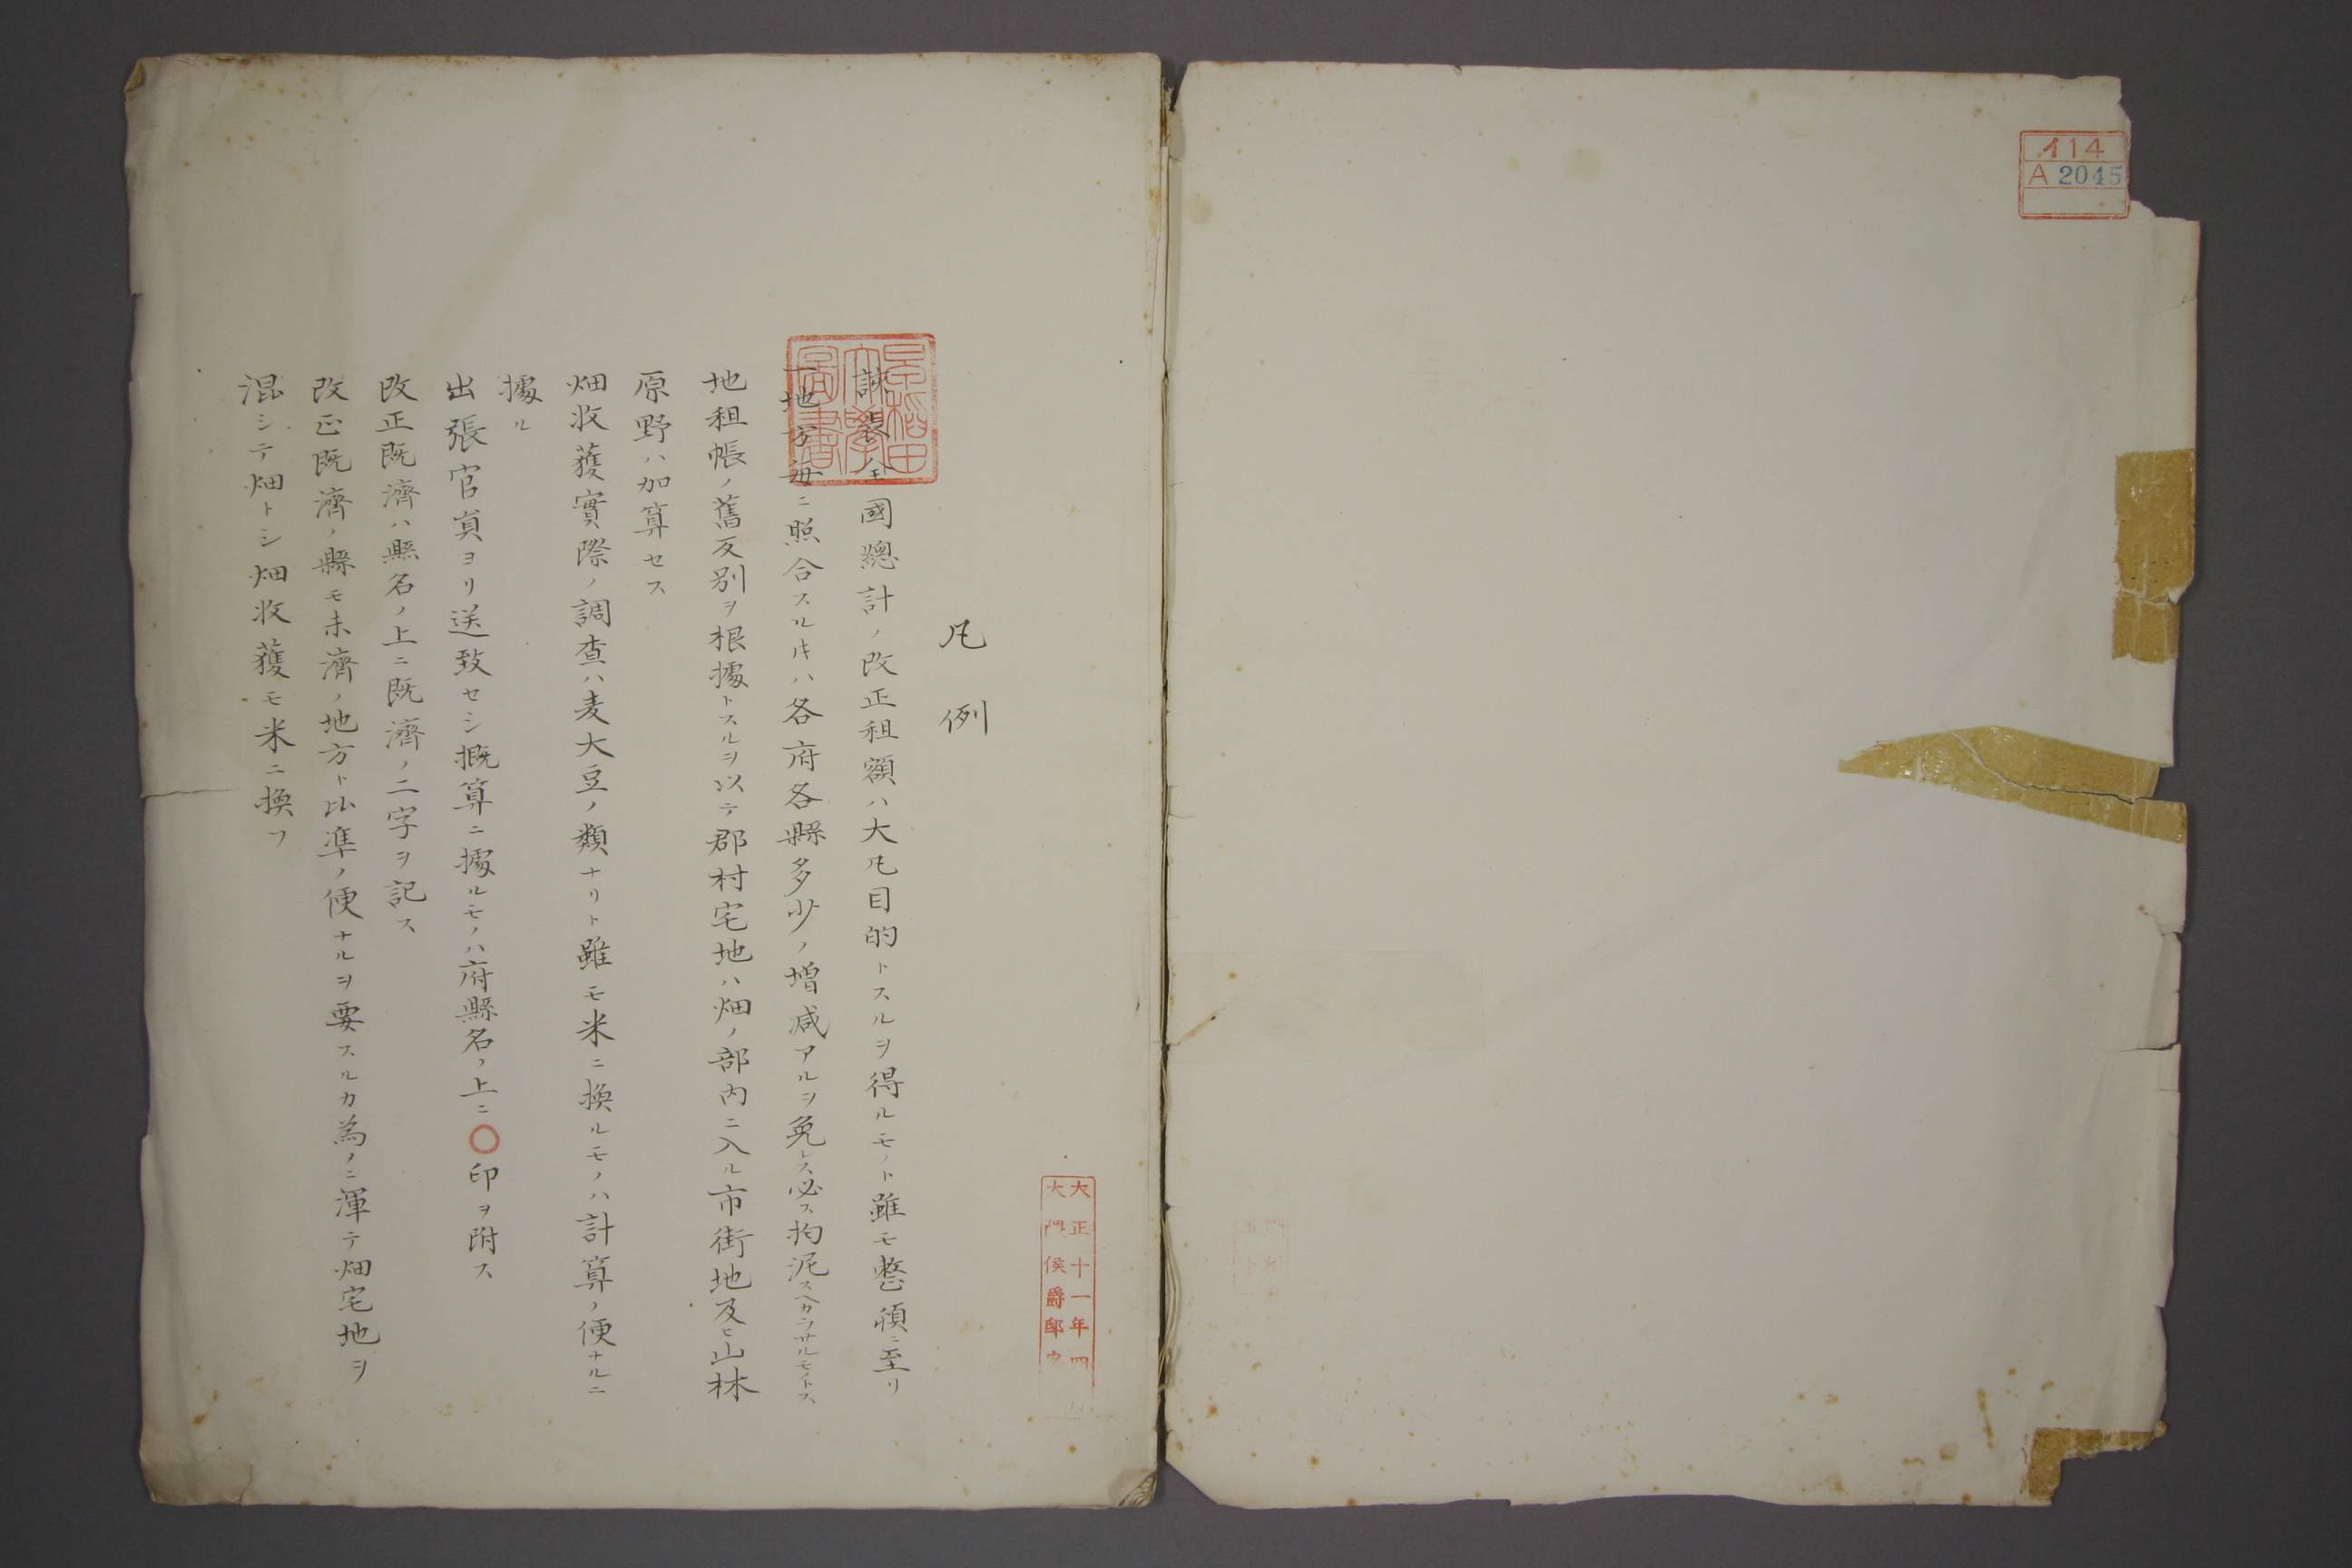 イ14
A 2045
凡例
該表全國總計ノ改正租額ハ大凡目的トスルヲ得ルモノト雖モ整頓ニ至リ
一地方毎ニ照合スルキハ各府各縣多少ノ増减アルヲ免レス必ス拘泥スヘカラサルモノトス
地租帳ノ舊反別ヲ根據トスルヲ以テ郡村宅地ハ畑ノ部内ニ入ル市街地及ヒ山林
原野ハ加算セス
畑收獲實際ノ調査ハ麦大豆ノ類ナリト雖モ米ニ換ルモノハ計算ノ便ナルニ
據ル
出張官員ヨリ送致セシ概算ニ據ルモノハ府縣名ノ上ニ〇印ヲ附ス
改正既濟ハ縣名ノ上ニ既濟ノ二字ヲ記ス
改正既濟ノ縣モ未濟ノ地方ト比準ノ便ナルヲ要スルカ為ノニ渾テ畑宅地ヲ
混シテ畑トシ畑收獲モ米ニ換フ
早稻田大學圖書
大正十一年四
大隈侯爵邸